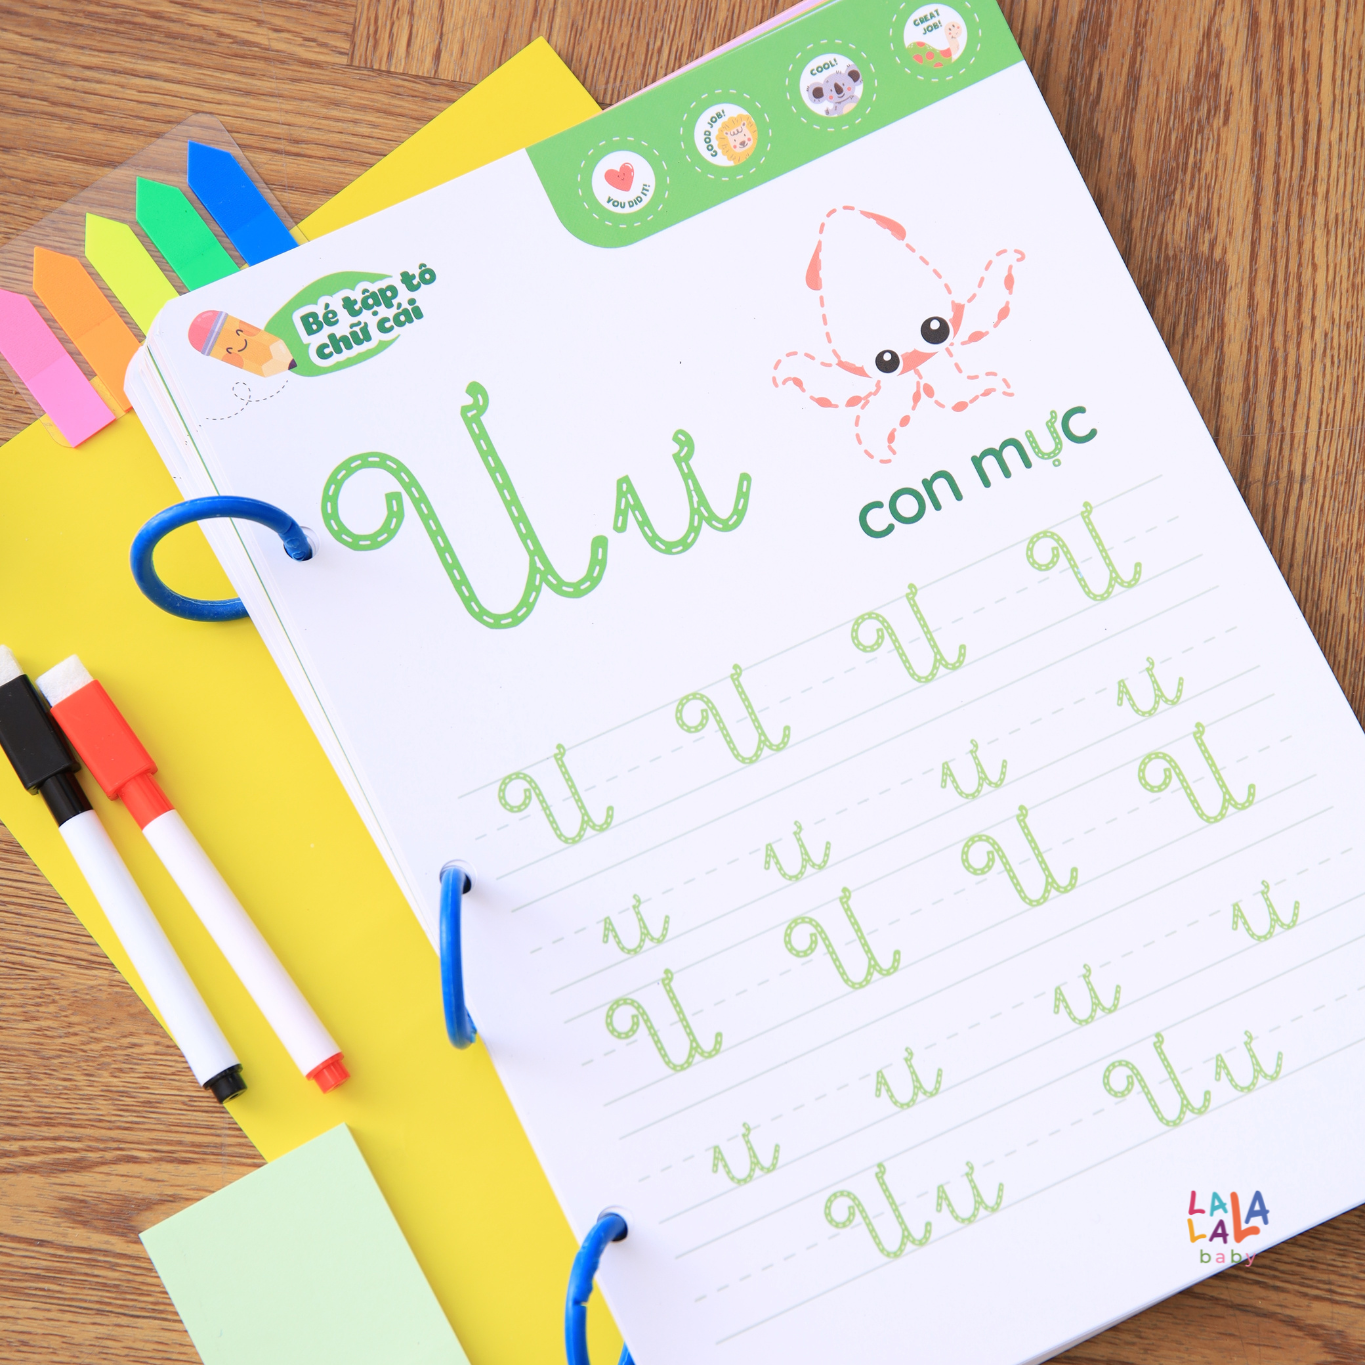 YOU DID IT!
GOOD JOB!
COOL!
GREAT JOB!
Bé tập tô
chữ cái
Ư ư
con mực
Ư Ư Ư Ư
ư ư ư ư
Ư Ư Ư Ư
ư ư ư ư
Ư ư Ư ư
LA LA
LA
baby